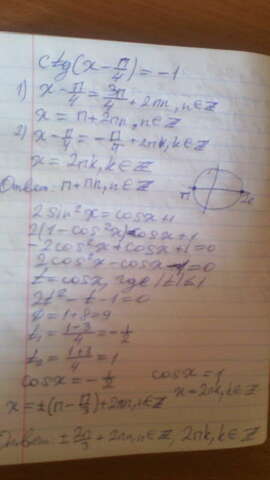 ctg(x - π/4) = -1
1) x - π/4 = 3π/4 + 2πn, n∈Z
x = π + 2πn, n∈Z
2) x - π/4 = -π/4 + 2πk, k∈Z
x = 2πk, k∈Z
Ответ: π + πn, n∈Z
π 2π
2sin²x = cosx + 1
2(1 - cos²x) = cosx + 1
-2cos²x + cosx + 1 = 0
2cos²x - cosx - 1 = 0
t = cosx, где |t| ≤ 1
2t² - t - 1 = 0
D = 1 + 8 = 9
t₁ = (1-3)/4 = -1/2
t₂ = (1+3)/4 = 1
cosx = -1/2 cosx = 1
x = 2πk, k∈Z
x = ±(π - π/3) + 2πn, n∈Z
Ответ: ± 2π/3 + 2πn, n∈Z, 2πk, k∈Z